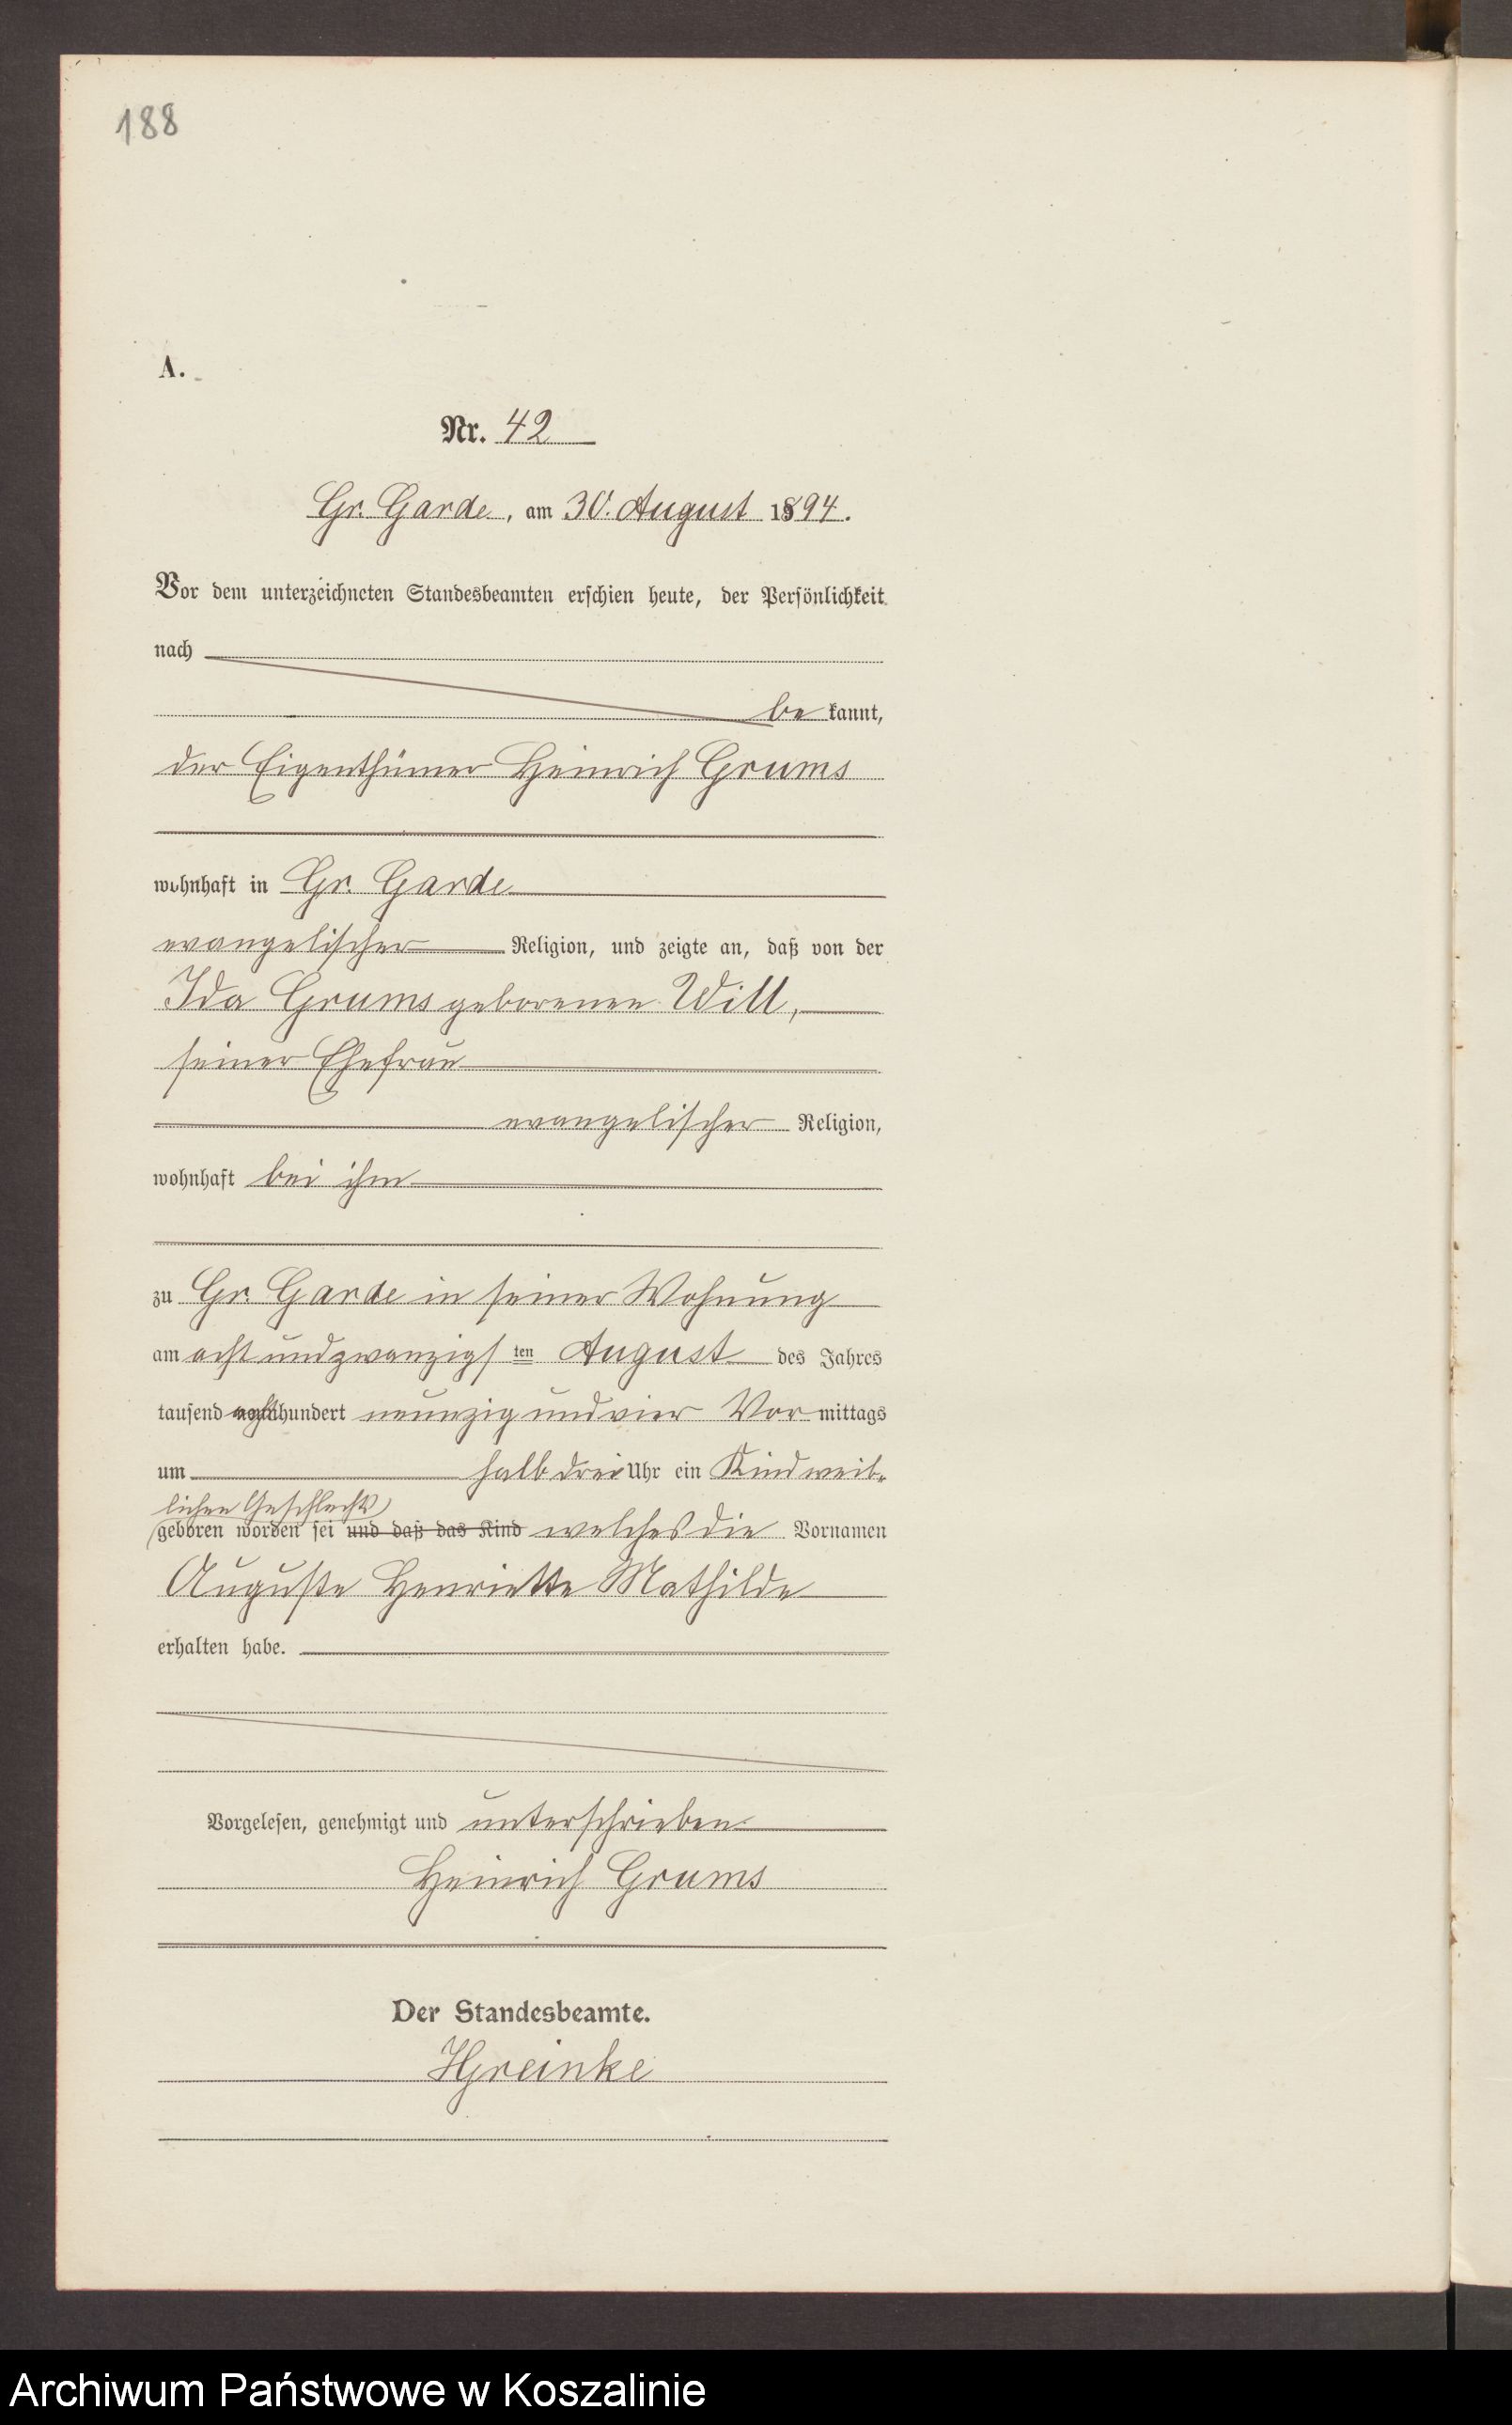 188
A.
Nr. 42
Gr. Garde, am 30. August 1894.
Vor dem unterzeichneten Standesbeamten erschien heute, der Persönlichkeit
nach
be kannt,
der Eigenthümer Heinrich Grums
wohnhaft in Gr. Garde
evangelischer Religion, und zeigte an, daß von der
Ida Grums geborenen Will,
seiner Ehefrau
evangelischer Religion,
wohnhaft bei ihm
zu Gr. Garde in seiner Wohnung
am acht und zwanzigsten August des Jahres
tausend achthundert neunzig und vier Vor mittags
um halb drei Uhr ein Kind weib-
lichen Geschlechts
geboren worden sei und daß das Kind welches die Vornamen
Auguste Henriette Mathilde
erhalten habe.
Vorgelesen, genehmigt und unterschrieben
Heinrich Grums
Der Standesbeamte.
HGreinke
Archiwum Państwowe w Koszalinie